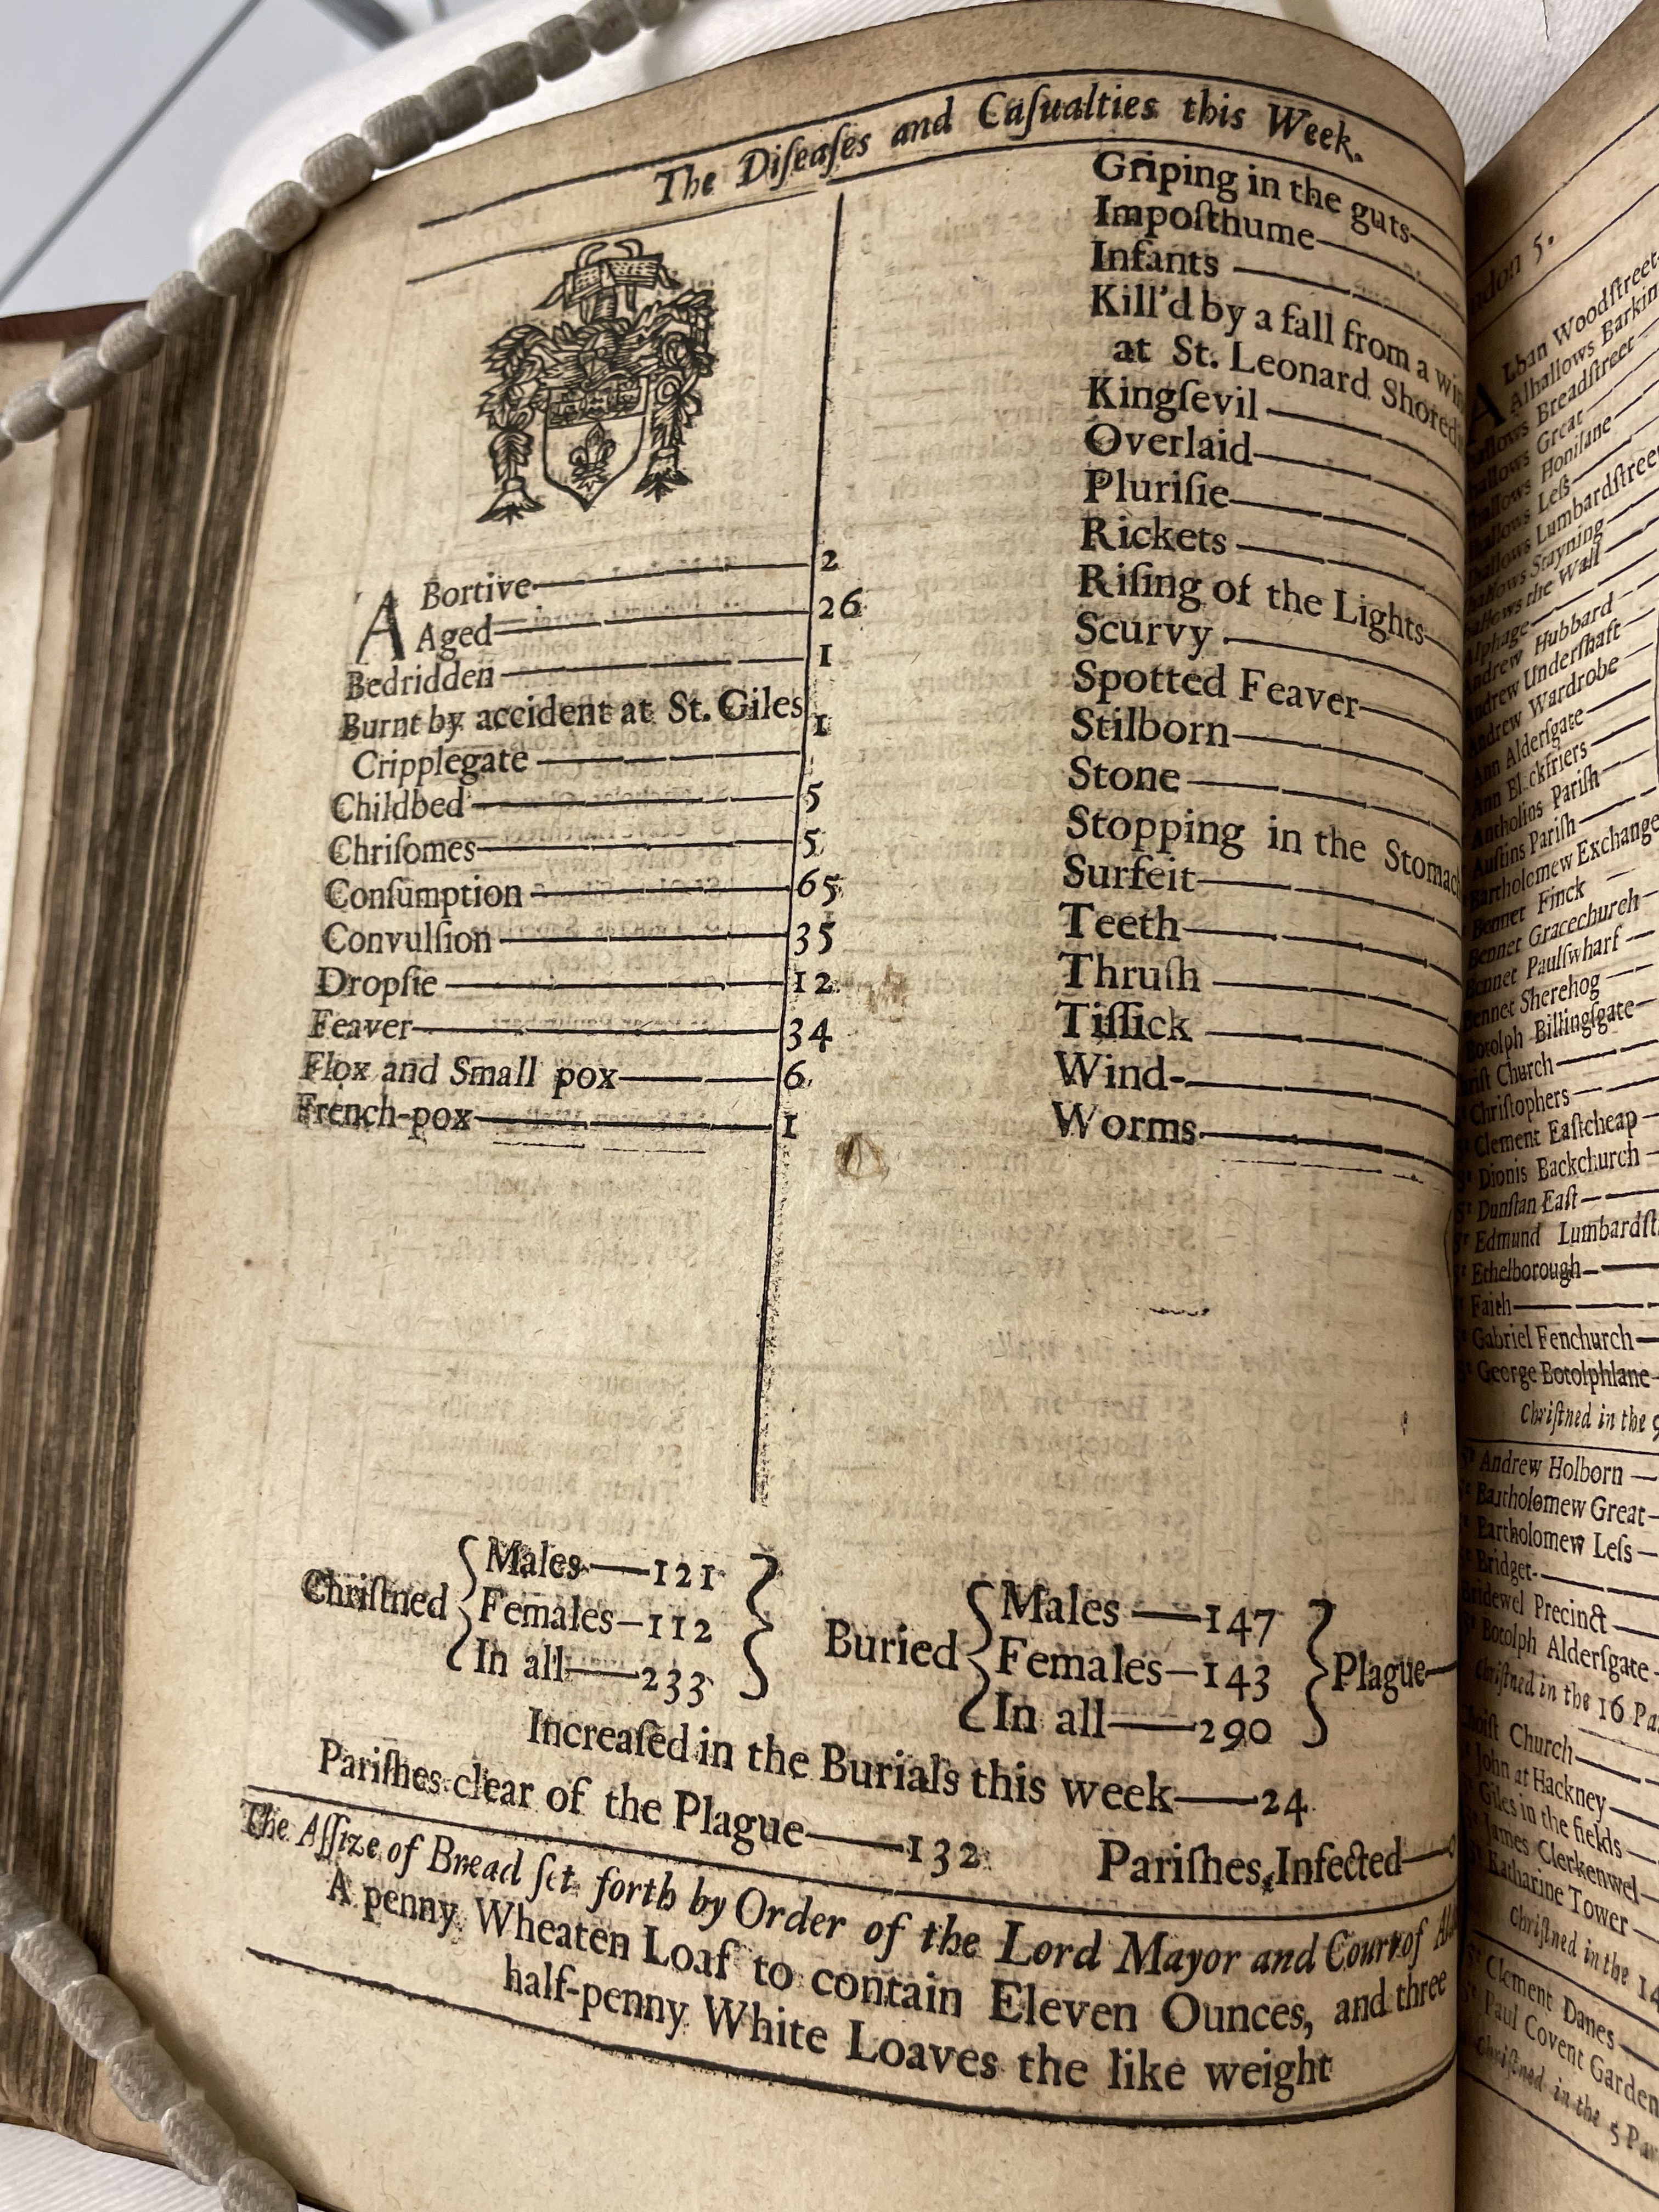 The Diſeaſes and Caſualties this Week.
ABortive 2
Aged 26
Bedridden 1
Burnt by accident at St. Giles
Cripplegate 1
Childbed 5
Chriſomes 5
Conſumption 65
Convulſion 35
Dropſie 12
Feaver 34
Flox and Small pox 6
French-pox 1
Griping in the guts
Impoſthume
Infants
Kill'd by a fall from a
at St. Leonard
Kingſevil
Overlaid
Pluriſie
Rickets
Riſing of the Lights
Scurvy
Spotted Feaver
Stilborn
Stone
Stopping in the
Surfeit
Teeth
Thruſh
Tiſſick
Wind
Worms
Chriſtned
Males—121
Females—112
In all—233
Buried
Males—147
Females—143
In all—290
Plague
Increaſed in the Burials this week—24
Pariſhes clear of the Plague—132 Pariſhes Infected—
The Aſſize of Bread ſet forth by Order of the Lord Mayor and Court of
A penny Wheaten Loaf to contain Eleven Ounces, and three
half-penny White Loaves the like weight
5.
Alban Woodſtreet
Alhallows Barkin
Breadſtreet
Great
Honilane
Leſs
Lumbardſtree
Stayning
the Wall
Hubbard
Underſhaft
Wardrobe
Alderſgate
Pariſh
Auſtins Pariſh
Bartholomew Exchange
Bennet Finck
Bennet Gracechurch
Bennet Paulſwharf
Sherehog
Botolph Billingſgate
Church
Chriſtophers
Clement Eaſtcheap
Dionis Backchurch
Dunſtan Eaſt
Edmund Lumbardſt
Ethelborough
Faith
Gabriel Fenchurch
George Botolphlane
Chriſtned in the 9
Andrew Holborn
Bartholomew Great
Bartholomew Leſs
Bridget
Precinct
Botolph Alderſgate
Chriſtned in the 16 Pa
Church
John at Hackney
Giles in the fields
James Clerkenwel
Katharine Tower
Chriſtned in the 14
Clement Danes
Paul Covent Garden
Chriſtned in the 5 Par